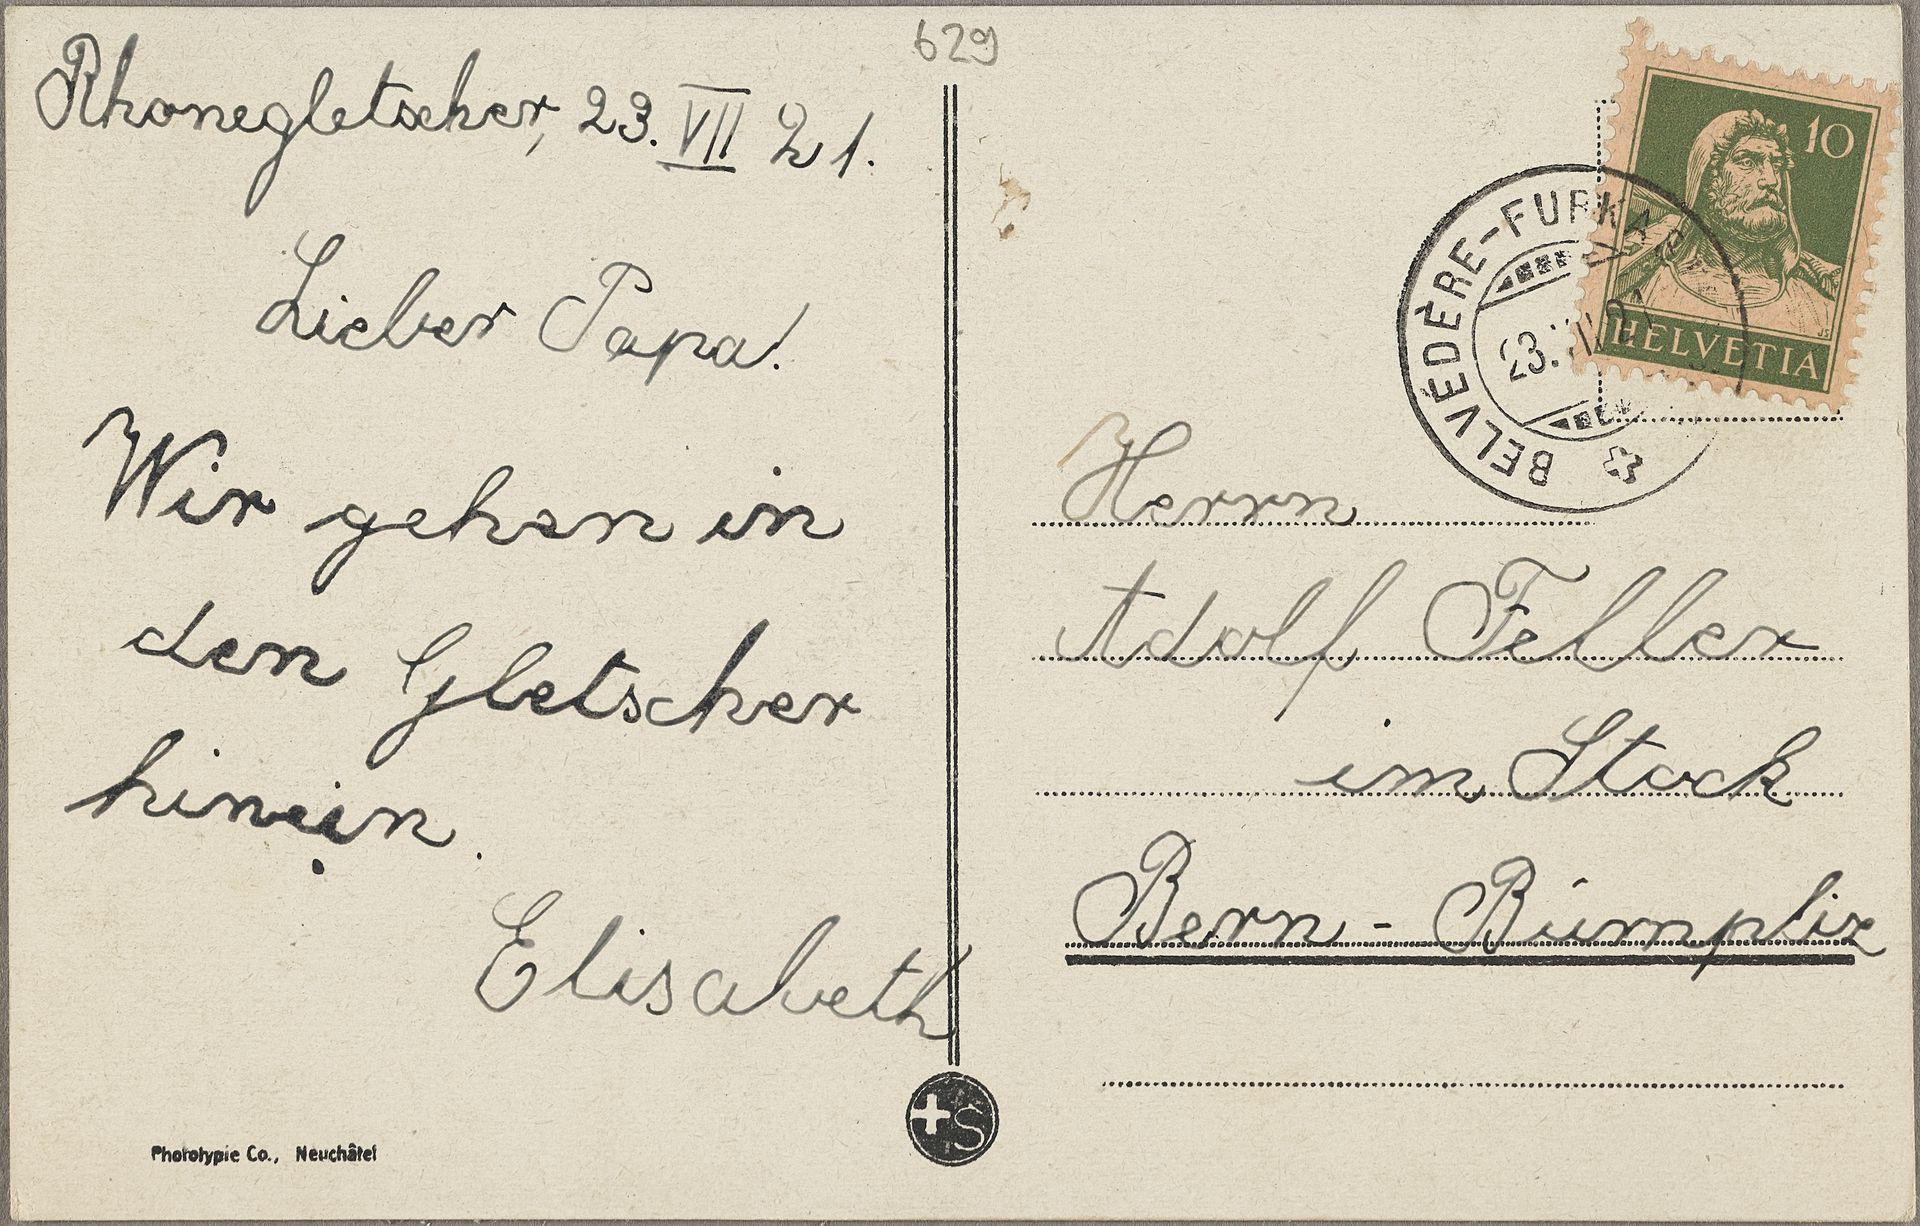 629
Rhonegletscher, 23. VII 21.
Lieber Papa!
Wir gehen in
den Gletscher
hinein.
Elisabeth
Phototypie Co., Neuchâtel
+S
10
HELVETIA
BELVÉDÈRE-FURKA
23. VII 21
Herrn
Adolf Feller
im Stock
Bern - Bümpliz